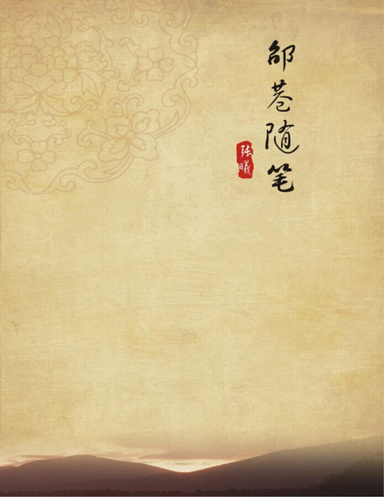 邵巷随笔
张曦